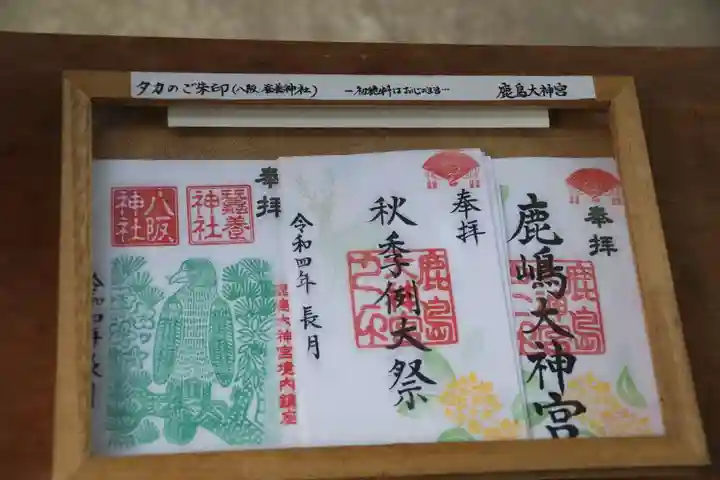 タカのご朱印(八阪 蚕養神社)
一初穂料はお心のまま…
鹿島大神宮
奉拝
八阪神社
蚕養神社
鹿島大神宮境内鎮座
奉拝
秋季例大祭
鹿島
令和四年 長月
奉拝
鹿嶋大神宮
鹿島